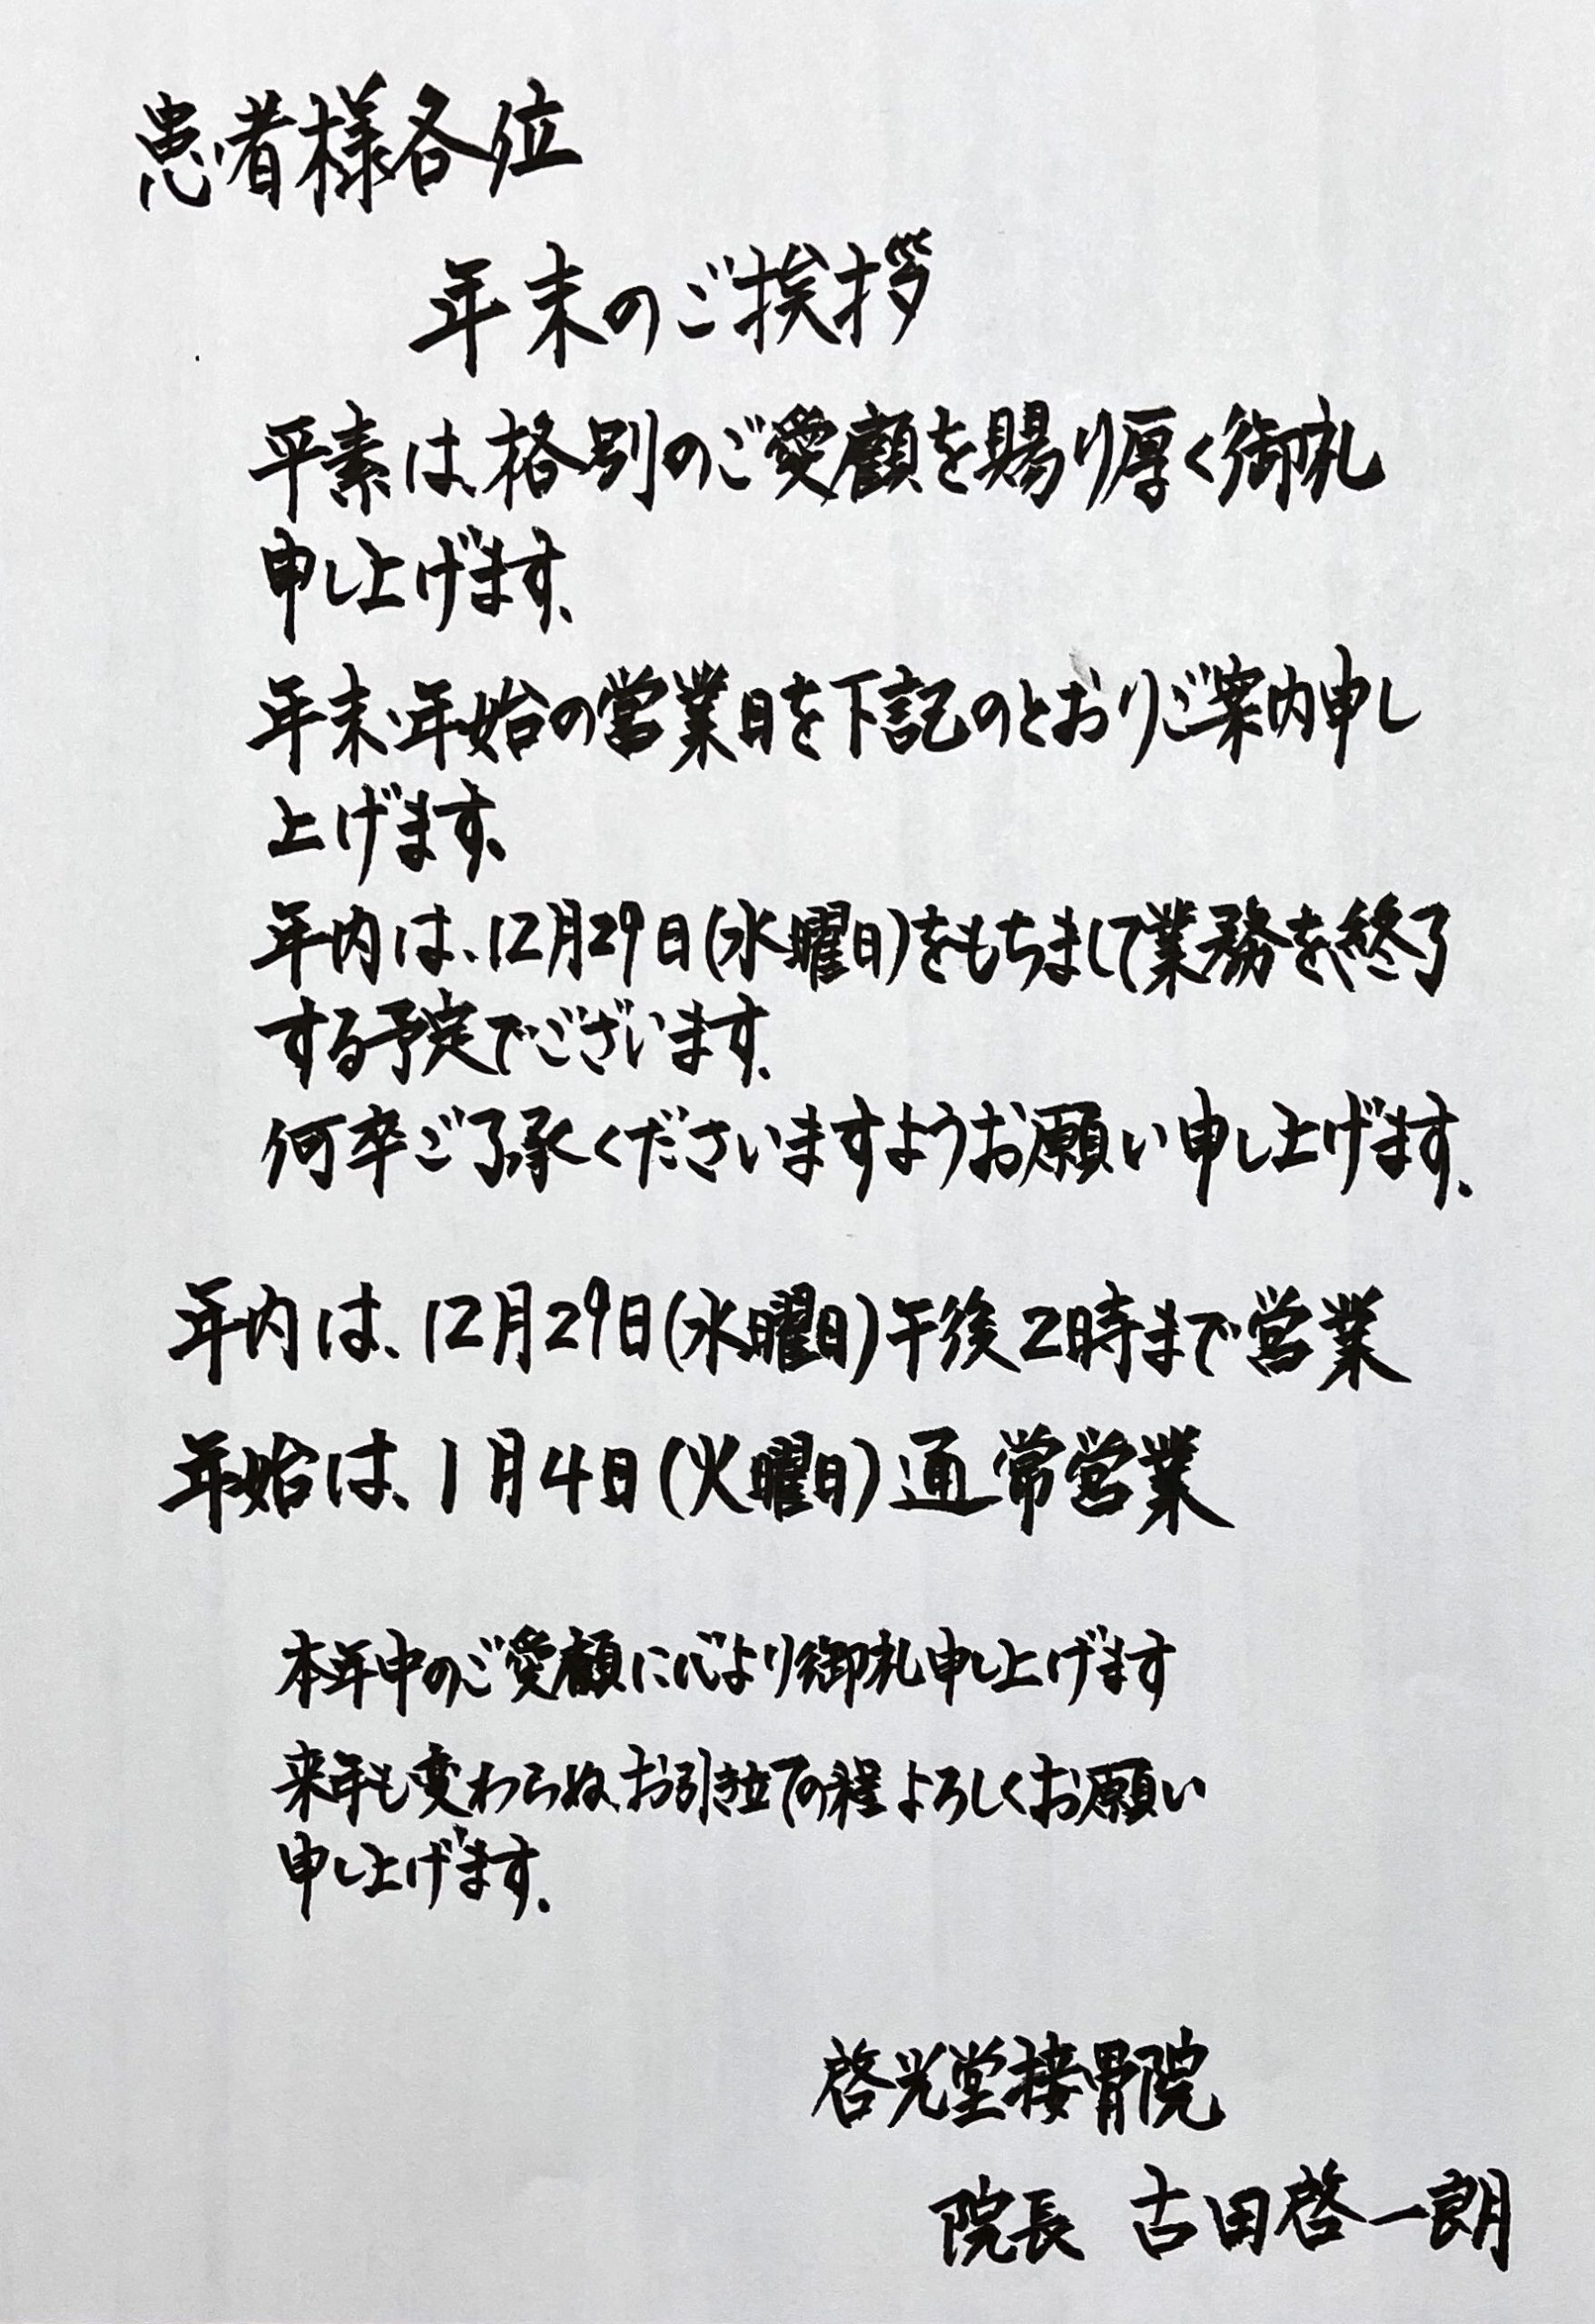 患者様各位
年末のご挨拶
平素は、格別のご愛顧を賜り厚く御札
申し上げます、
年末・年始の営業日を下記のとおりご案内申し
上げます。
年内は、12月29日(水曜日)をもちまして業務を終了
する予定でございます。
何卒ご了承くださいますようお願い申し上げます。
年内は、12月29日(水曜日)午後2時まで営業
年始は、1月4日(火曜日)通常営業
本年中のご愛顧に心より御札申し上げます
来年も変わらぬ、お引き立ての程よろしくお願い
申し上げます。
啓光堂接骨院
院長 古田啓一朗